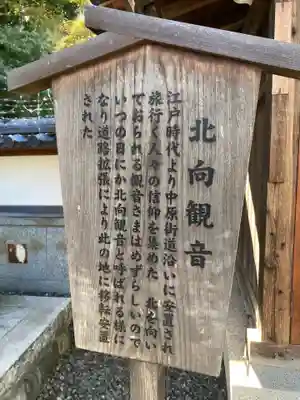 北向観音
江戸時代より中原街道沿いに安置され
旅行く人々の信仰を集めた 北を向い
ておられる観音さまはめずらしいので
いつの日にか北向観音と呼ばれる様に
なり道路拡張により此の地に移転安置
された